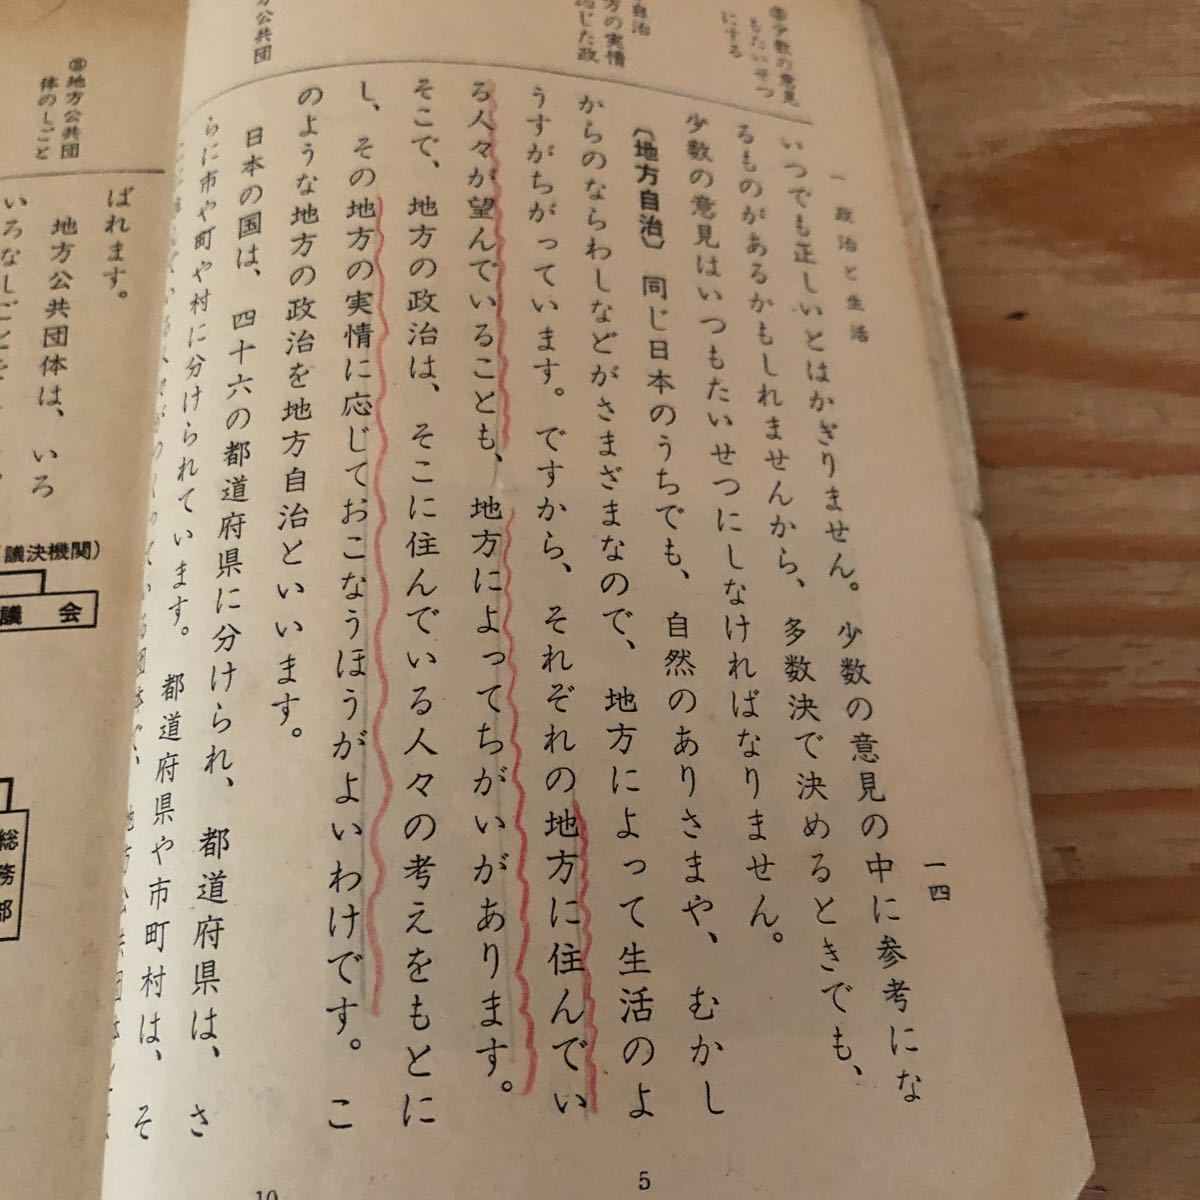 一 政治と生活
一四
③少数の意見
もたいせつ
にする
自治
方の実情
応じた政
方公共団
いつでも正しいとはかぎりません。少数の意見の中に参考にな
るものがあるかもしれませんから、多数決で決めるときでも、
少数の意見はいつもたいせつにしなければなりません。
〔地方自治〕 同じ日本のうちでも、自然のありさまや、むかし
からのならわしなどがさまざまなので、地方によって生活のよ
うすがちがっています。ですから、それぞれの地方に住んでい
る人々が望んでいることも、地方によってちがいがあります。
そこで、地方の政治は、そこに住んでいる人々の考えをもとに
し、その地方の実情に応じておこなうほうがよいわけです。こ
のような地方の政治を地方自治といいます。
日本の国は、四十六の都道府県に分けられ、都道府県は、さ
らに市や町や村に分けられています。都道府県や市町村は、そ
5
10
③地方公共団
体のしごと
ばれます。
地方公共団体は、いろ
いろなしごとを
(議決機関)
議会
総務部